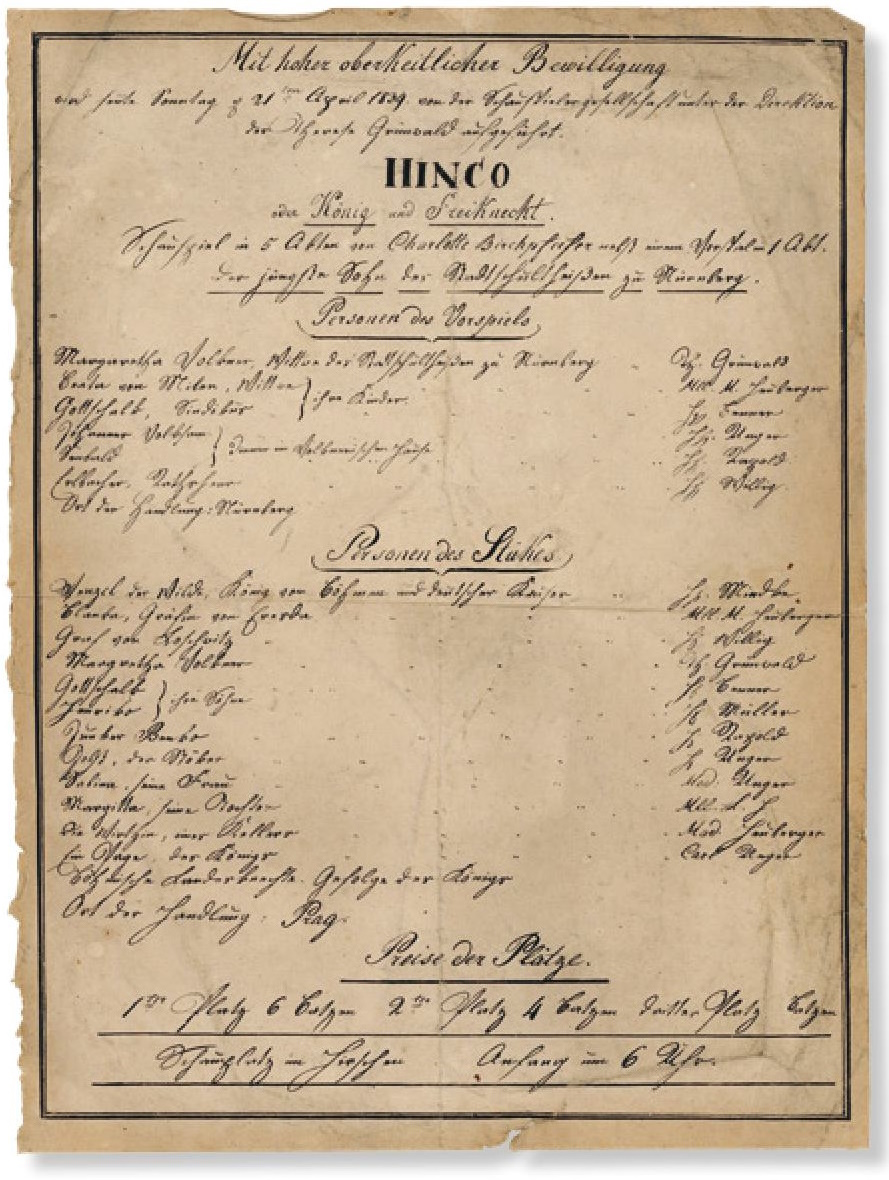 Mit hoher oberkeitlicher Bewilligung
wird heute Sonntag d 21ten April 1839. von der Schauspielergesellschaft unter der Direktion
der Therese Grünwald aufgeführt.
HINCO
oder König und Freiknecht.
Schauspiel in 5 Akten von Charlotte Birchpfeiffer nebst einem Vorspiel in 1 Akt.
Der jüngste Sohn des Stadtschultheißen zu Nürnberg.
Personen des Vorspiels
Margaretha Volkner, Wittwe des Stadtschultheißen zu Nürnberg Th. Grünwald
Beata von Milen, Wittwe Mll. M. Heuberger
Gottschalk, ihre Kinder Hr.
Johannes Hr. Unger
Sebald im Volknerischen Hause Hr. Rapold
Erlbacher, Rathsherr Hr. Willig
Ort der Handlung: Nürnberg
Personen des Stükes
Wenzel der Wilde, König von Böhmen und deutscher Kaiser Hr.
Gräfin von Mll. M. Heuberger
Graf von Hr. Willig
Margretha Volkner Th. Grünwald
Gottschalk Hr.
ihre Söhne Hr. Müller
Junker Hr. Rapold
der Hr. Unger
seine Frau Mad. Unger
seine Tochter Mll.
Die Wirthin, eines Kellers Mad. Heuberger
Ein Page, des Königs Carl Unger
Böhmische Gefolge des Königs
Ort der Handlung: Prag.
Preise der Plätze.
1ter Platz 6 Batzen 2ter Platz 4 Batzen dritter Platz Batzen
Schauplatz im Hirschen Anfang um 6 Uhr.